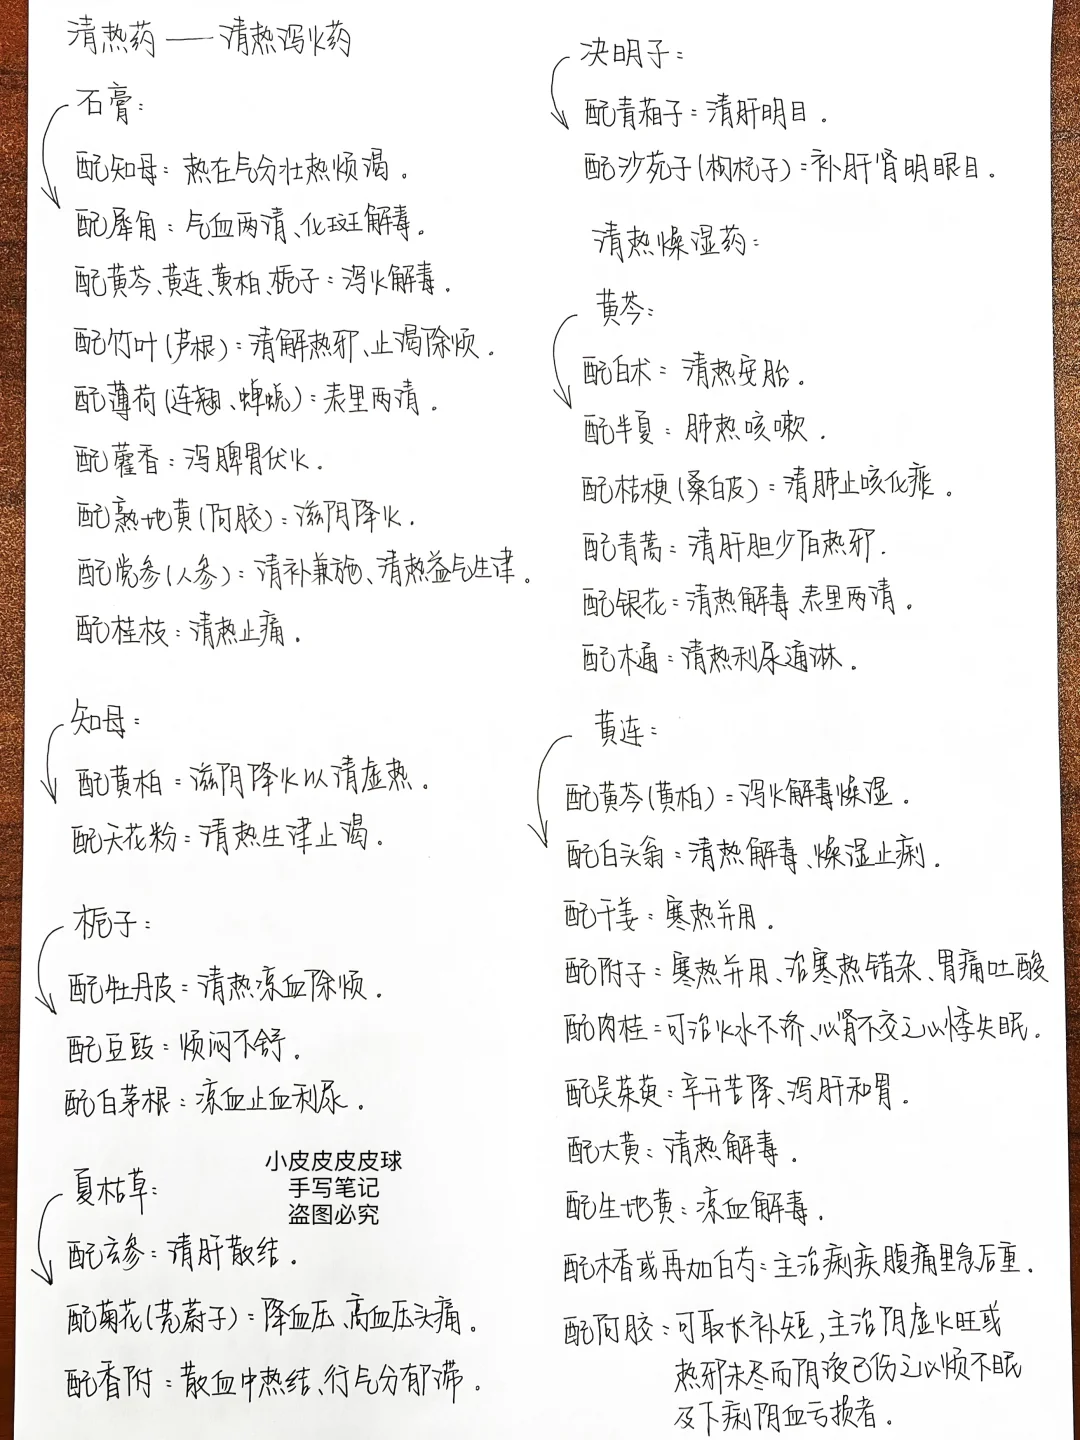 清热药——清热泻火药
石膏:
配知母:热在气分壮热烦渴.
配犀角:气血两清、化斑解毒.
配黄芩、黄连、黄柏、栀子:泻火解毒.
配竹叶(芦根):清解热邪、止渴除烦.
配薄荷(连翘、蝉蜕):表里两清.
配藿香:泻脾胃伏火.
配熟地黄(阿胶):滋阴降火.
配党参(人参):清补兼施、清热益气生津.
配桂枝:清热止痛.
知母:
配黄柏:滋阴降火以清虚热.
配天花粉:清热生津止渴.
栀子:
配牡丹皮:清热凉血除烦.
配豆豉:烦闷不舒.
配白茅根:凉血止血利尿.
夏枯草:
配玄参:清肝散结.
配菊花(茺蔚子):降血压、高血压头痛.
配香附:散血中热结、行气分郁滞.
小皮皮皮皮球
手写笔记
盗图必究
决明子:
配青葙子:清肝明目.
配沙苑子(枸杞子):补肝肾明眼目.
清热燥湿药:
黄芩:
配白术:清热安胎.
配半夏:肺热咳嗽.
配桔梗(桑白皮):清肺止咳化痰.
配青蒿:清肝胆少阳热邪.
配银花:清热解毒、表里两清.
配木通:清热利尿通淋.
黄连:
配黄芩(黄柏):泻火解毒燥湿.
配白头翁:清热解毒、燥湿止痢.
配干姜:寒热并用.
配附子:寒热并用、治寒热错杂、胃痛吐酸
配肉桂:可治火水不济、心肾不交之心悸失眠.
配吴茱萸:辛开苦降、泻肝和胃.
配大黄:清热解毒.
配生地黄:凉血解毒.
配木香或再加白芍:主治痢疾腹痛里急后重.
配阿胶:可取长补短,主治阴虚火旺或
热邪未尽而阴液已伤之心烦不眠
及下痢阴血亏损者.